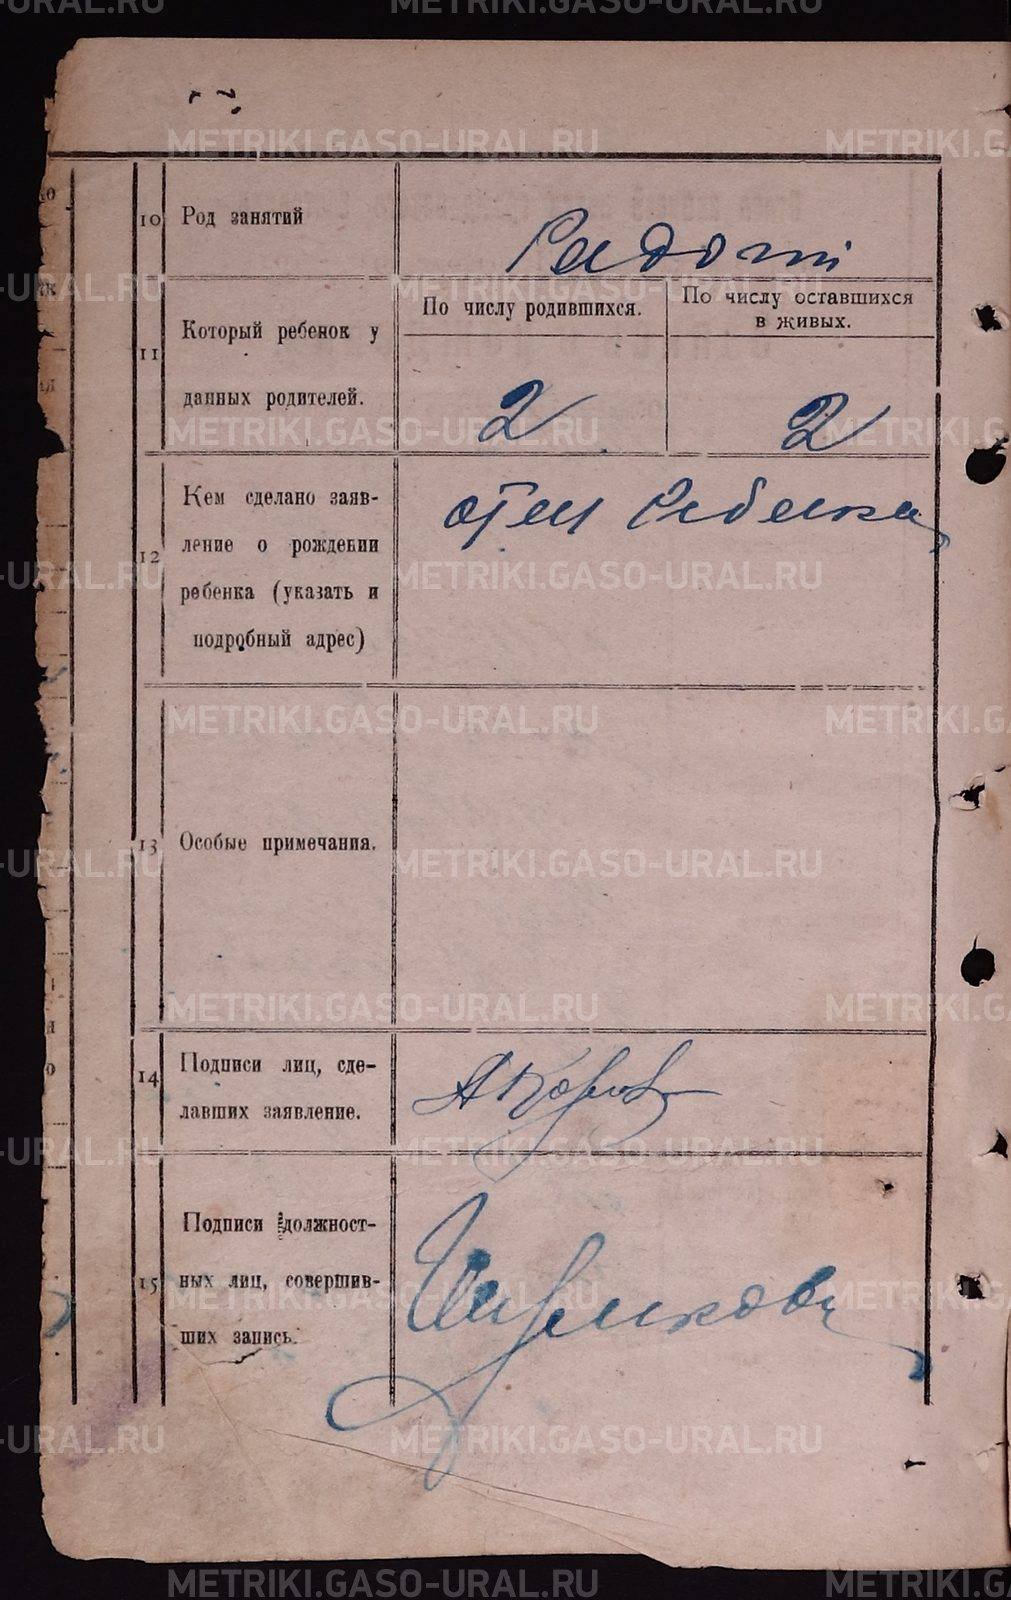 10 Род занятий
11 Который ребенок у
данных родителей.
По числу родившихся.
По числу оставшихся
в живых.
2
2
12 Кем сделано заяв-
ление о рождении
ребенка (указать и
подробный адрес)
отец ребенка
13 Особые примечания.
14 Подписи лиц, сде-
лавших заявление.
15 Подписи должност-
ных лиц, совершив-
ших запись.
METRIKI.GASO-URAL.RU